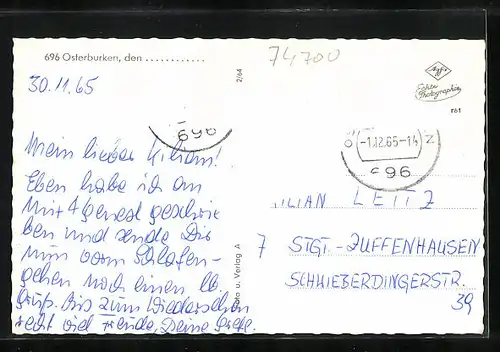 696 Osterburken, den ............
74700
30.11.65
2/64
Agfa
Echte
Photographie
r61
696
-1.12.65-14
696
Mein lieber Kilian!
Eben habe ich an
geschrie
ben und sende Dir
nun vorm Schlafen-
gehen noch einen lb.
Gruß. Bis zum Wiedersehen
recht viel Freude, Deine Grete.
Foto u. Verlag A
ILIAN LEITZ
7 STGT.-ZUFFENHAUSEN
SCHWIEBERDINGERSTR.
39